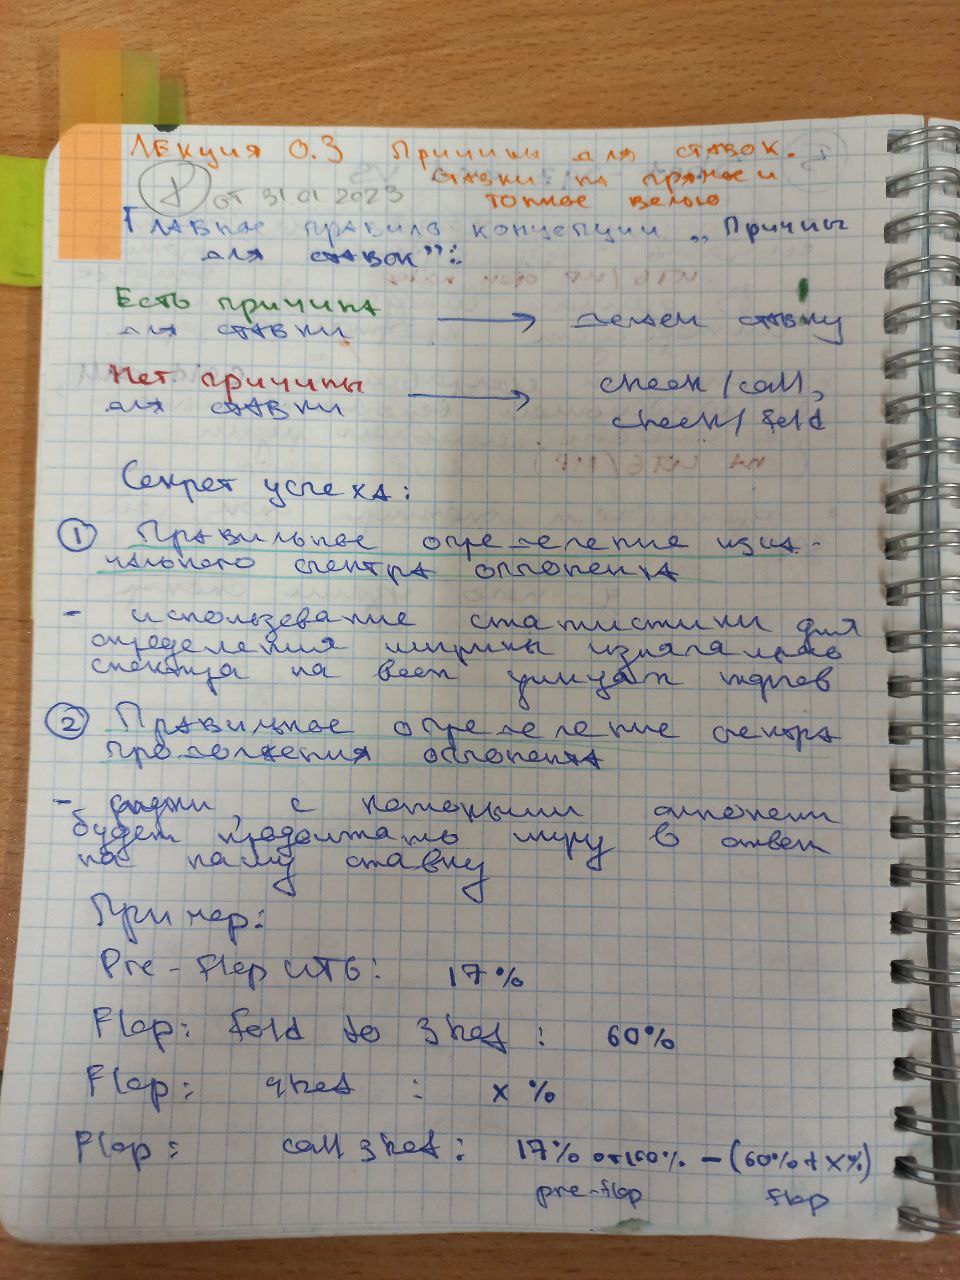 Лекция 0.3 Причины для ставок.
Ставки на пряное и
(1) от 31.01.2023 топное велью
Главное правило концепции „Причины
для ставок”:
Есть причина
для ставки → делаем ставку
Нет причины
для ставки → check / call,
check / fold
Секрет успеха:
① Правильное определение изна-
чального спектра оппонента
- использование статистики для
определения ширины изначально
спектра на всех улицах торгов
② Правильное определение спектра
продолжения оппонента
- с которыми оппонент
будет продолжать игру в ответ
на нашу ставку
Пример:
Pre-flop UTG: 17%
Flop: fold to 3bet: 60%
Flop: 4bet : x %
Flop: call 3bet: 17% от 100% - (60% + x%)
pre-flop flop